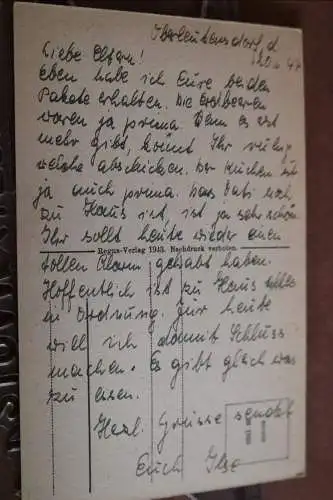 Oberleutensdorf, d.
Liebe Eltern!
eben habe ich Eure beiden
Pakete erhalten. Die Erdbeeren
waren ja prima. Wenn es erst
mehr gibt, könnt Ihr ruhig
welche abschicken. Der Kuchen ist
ja auch prima. Das Vati noch
zu Haus ist, ist ja sehr schön.
Ihr sollt heute wieder einen
Regus-Verlag 1943. Nachdruck verboten.
tollen Alarm gehabt haben.
Hoffentlich ist zu Haus alles
in Ordnung. Für heute
will ich damit Schluss
machen. Es gibt gleich was
zu essen.
Herzl. Grüsse sendet
Euch Ilse